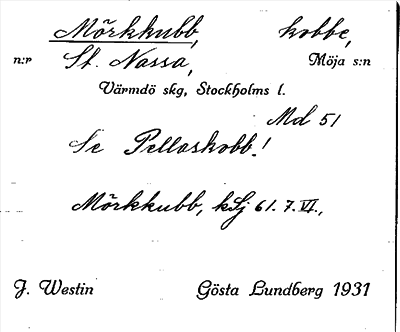 Mörkkubb, kobbe,
n:r St. Nassa, Möja s:n
Värmdö skg, Stockholms l.
Md 51
Se Pellaskobb!
Mörkkubb, kSj 61. 7. VI.,
J. Westin Gösta Lundberg 1931